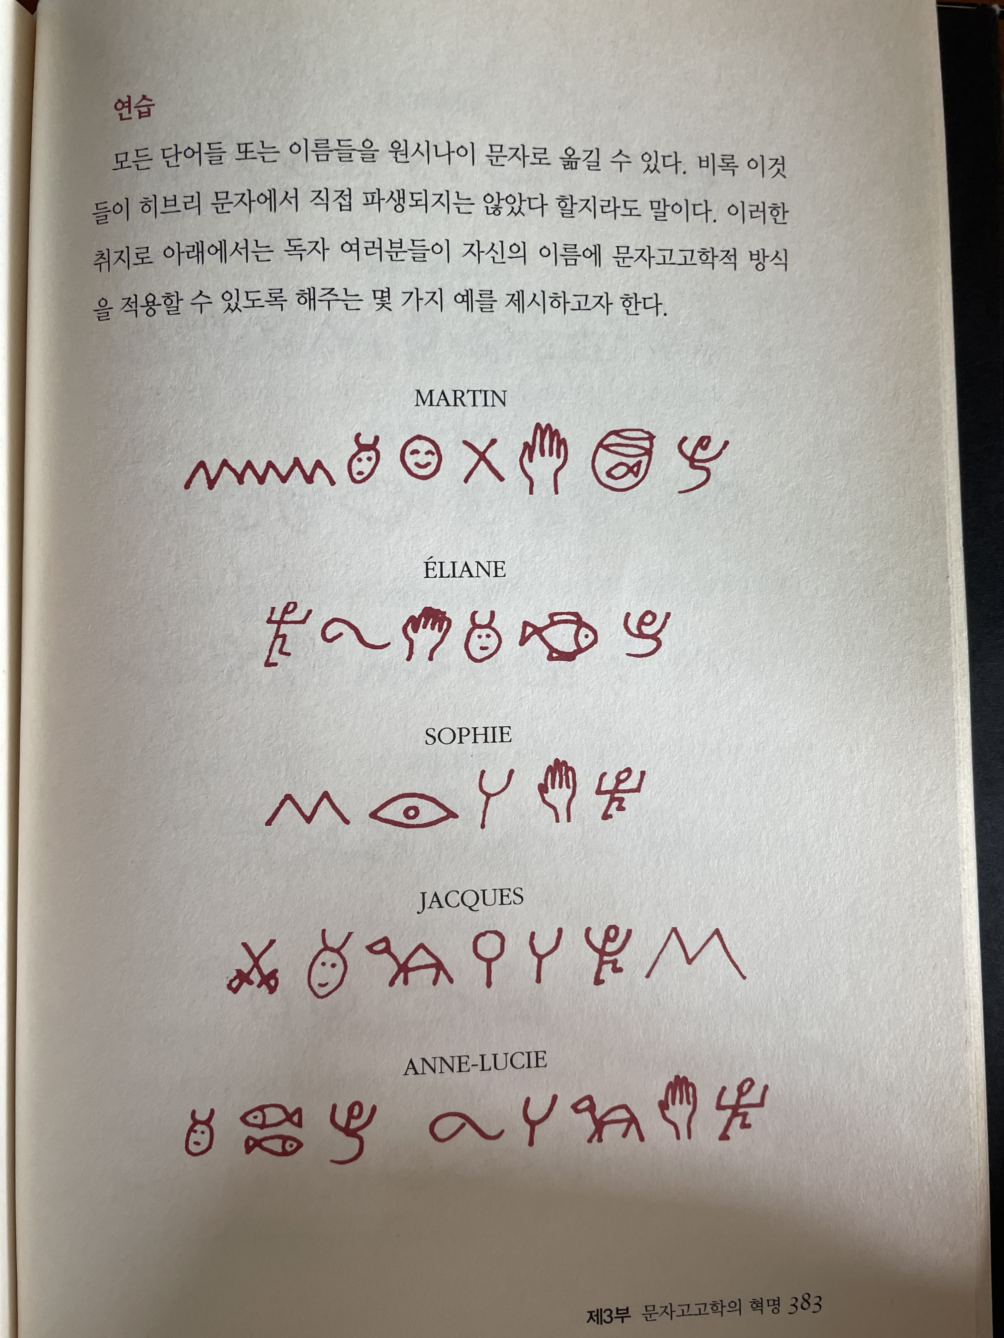 연습
모든 단어들 또는 이름들을 원시나이 문자로 옮길 수 있다. 비록 이것
들이 히브리 문자에서 직접 파생되지는 않았다 할지라도 말이다. 이러한
취지로 아래에서는 독자 여러분들이 자신의 이름에 문자고고학적 방식
을 적용할 수 있도록 해주는 몇 가지 예를 제시하고자 한다.
MARTIN
ÉLIANE
SOPHIE
JACQUES
ANNE-LUCIE
제3부 문자고고학의 혁명 383